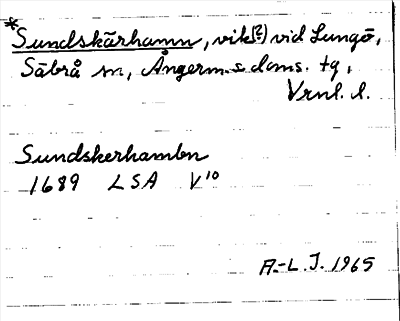 *Sundskärhamn, vik[?] vid Lungö,
Säbrå sn, Ångerm. s. doms. tg,
Vrnl. l.
Sundskerhambn
1689 LSA V¹⁰
A.-L. J. 1965